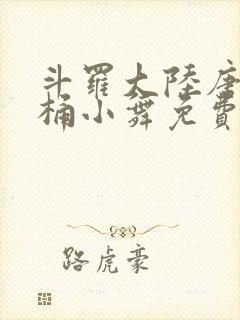 斗羅大陸唐
桶小舞免費
路虎豪